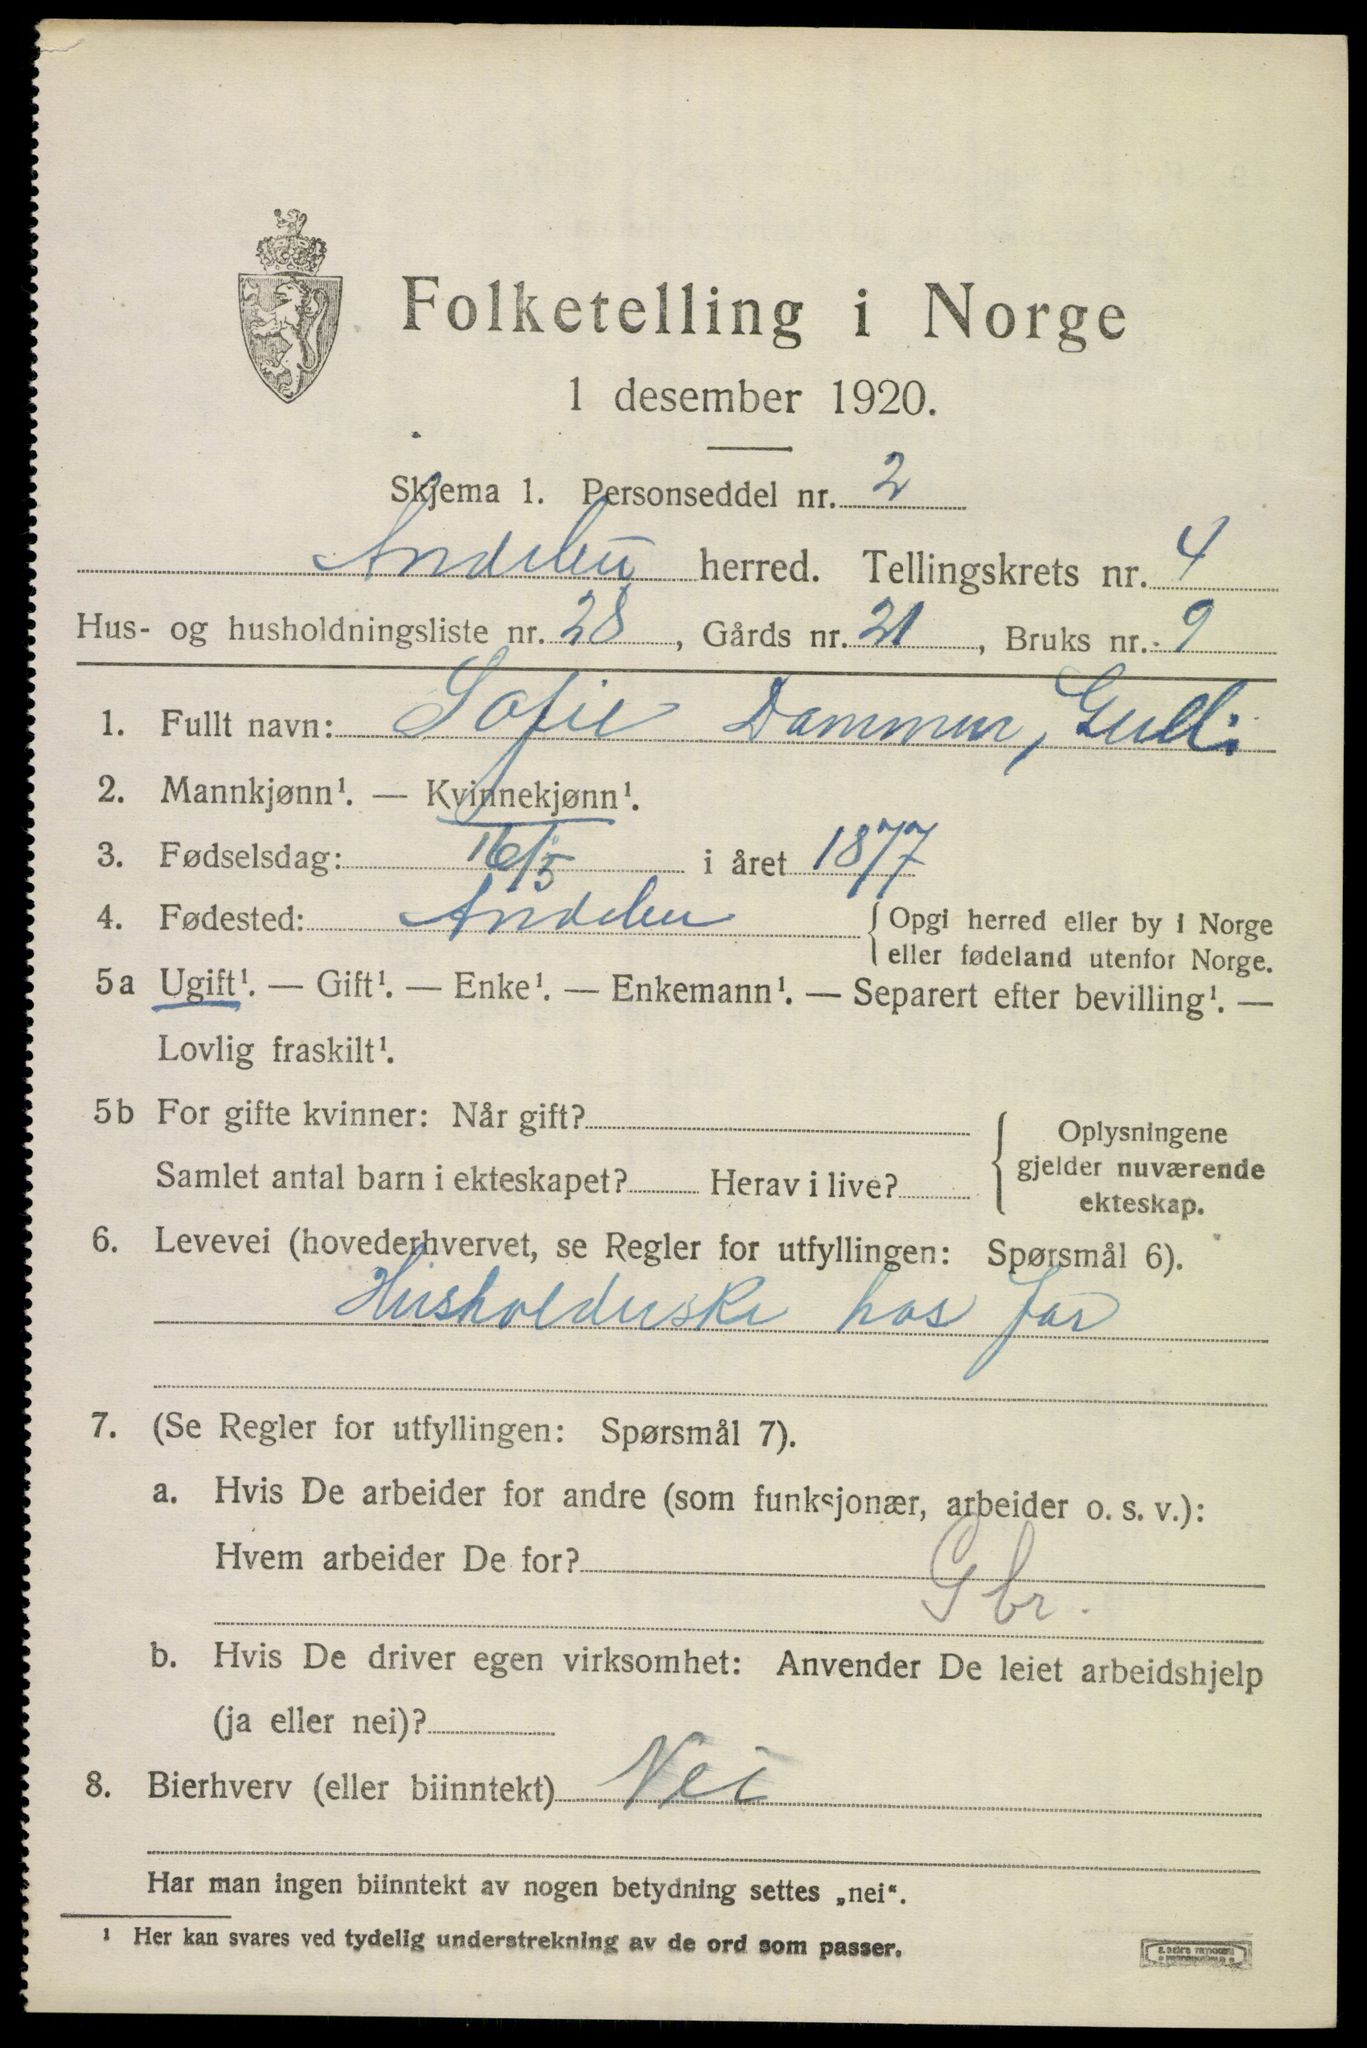 Folketelling i Norge
1 desember 1920.
Skjema 1. Personseddel nr. 2
Andebu herred. Tellingskrets nr. 4
Hus- og husholdningsliste nr. 28, Gårds nr. 21, Bruks nr. 9
1. Fullt navn: Sofie Dammen, Gulli
2. Mannkjønn¹. — Kvinnekjønn¹.
3. Fødselsdag: 16/5 i året 1877
4. Fødested: Andebu { Opgi herred eller by i Norge
eller fødeland utenfor Norge.
5a Ugift¹. — Gift¹. — Enke¹. — Enkemann¹. — Separert efter bevilling¹. —
Lovlig fraskilt¹.
5b For gifte kvinner: Når gift?
Samlet antal barn i ekteskapet? Herav i live?
{ Oplysningene
gjelder nuværende
ekteskap.
6. Levevei (hovederhvervet, se Regler for utfyllingen: Spørsmål 6).
Husholderske hos far
7. (Se Regler for utfyllingen: Spørsmål 7).
a. Hvis De arbeider for andre (som funksjonær, arbeider o. s. v.):
Hvem arbeider De for?
Gbr.
b. Hvis De driver egen virksomhet: Anvender De leiet arbeidshjelp
(ja eller nei)?
8. Bierhverv (eller biinntekt) Nei
Har man ingen biinntekt av nogen betydning settes „nei“.
¹ Her kan svares ved tydelig understrekning av de ord som passer.